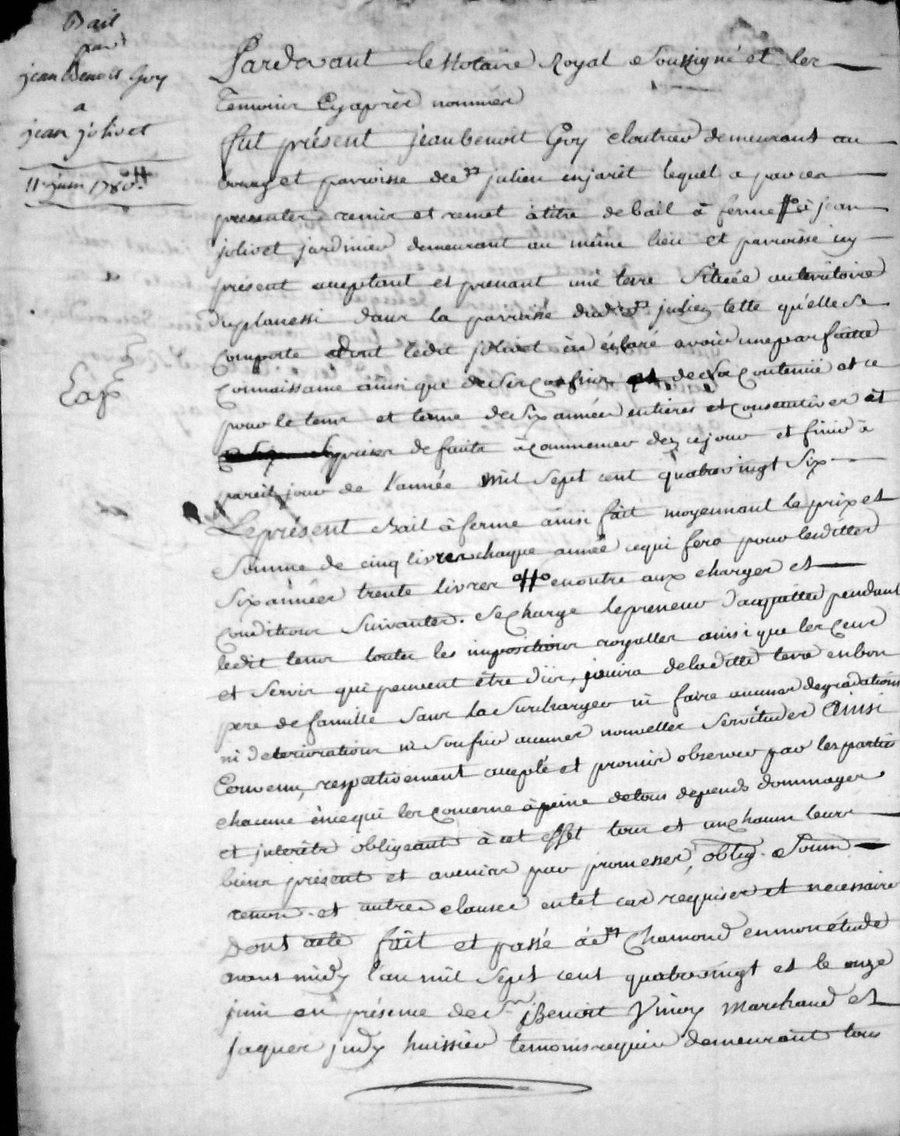 Bail
par
jean Benoit Goy
a
jean jolivet
11e juin 1780
Pardevant le Notaire Royal soussigné et les
témoins cyaprès nommés
fut présent jean benoit Goy cloutier demeurant au
bourg et parroisse de st julien en jarêt lequel a par ces
presentes remis et remet à titre de bail à ferme à jean
jolivet jardinier demeurant au même lieu et parroisse icy
présent acceptant et prenant une terre située au territoire
du planessi dans la parroisse dudit st julien telle qu'elle se
comporte dont ledit jolivet à dit avoir une parfaitte
connaissance ainsi que de ses confins de sa contenue et ce
pour le tems et terme de six années entieres et consecutives et
six prises de fruits à commencer dez ce jour et finir à
pareil jour de l'année mil sept cent quatrevingt six
Le présent Bail à ferme ainsi fait moyennant le prix et
somme de cinq livres chaque année ce qui fera pour lesdittes
six années trente livres enoutre aux charges et
conditions suivantes. Se charge le preneur d'acquitter pendant
ledit tems toutes les impositions royalles ainsi que les cens
et servis qui peuvent être dûs, jouira de laditte terre en bon
pere de famille sans la surcharger ni faire aucunes degradations
ni deteriorations ni soufrir aucunes nouvelles servitudes Ainsi
Convenu, respectivement accepté et promis observer par les parties
chacune en ce qui les concerne à peine de tous depends dommages
et interêts obligeant à cet effet tous et un chacun leurs
biens présent et avenir par promesses, oblig. soum
renon. et autres clauses en tel cas requises et necessaire
Dont acte fait et passé à st Chamond en mon étude
avant midy l'an mil sept cent quatrevingt et le onze
juin en présence de sr Benoit Vinoy Marchand et
jaques judy huissier temoins requis demeurant tous